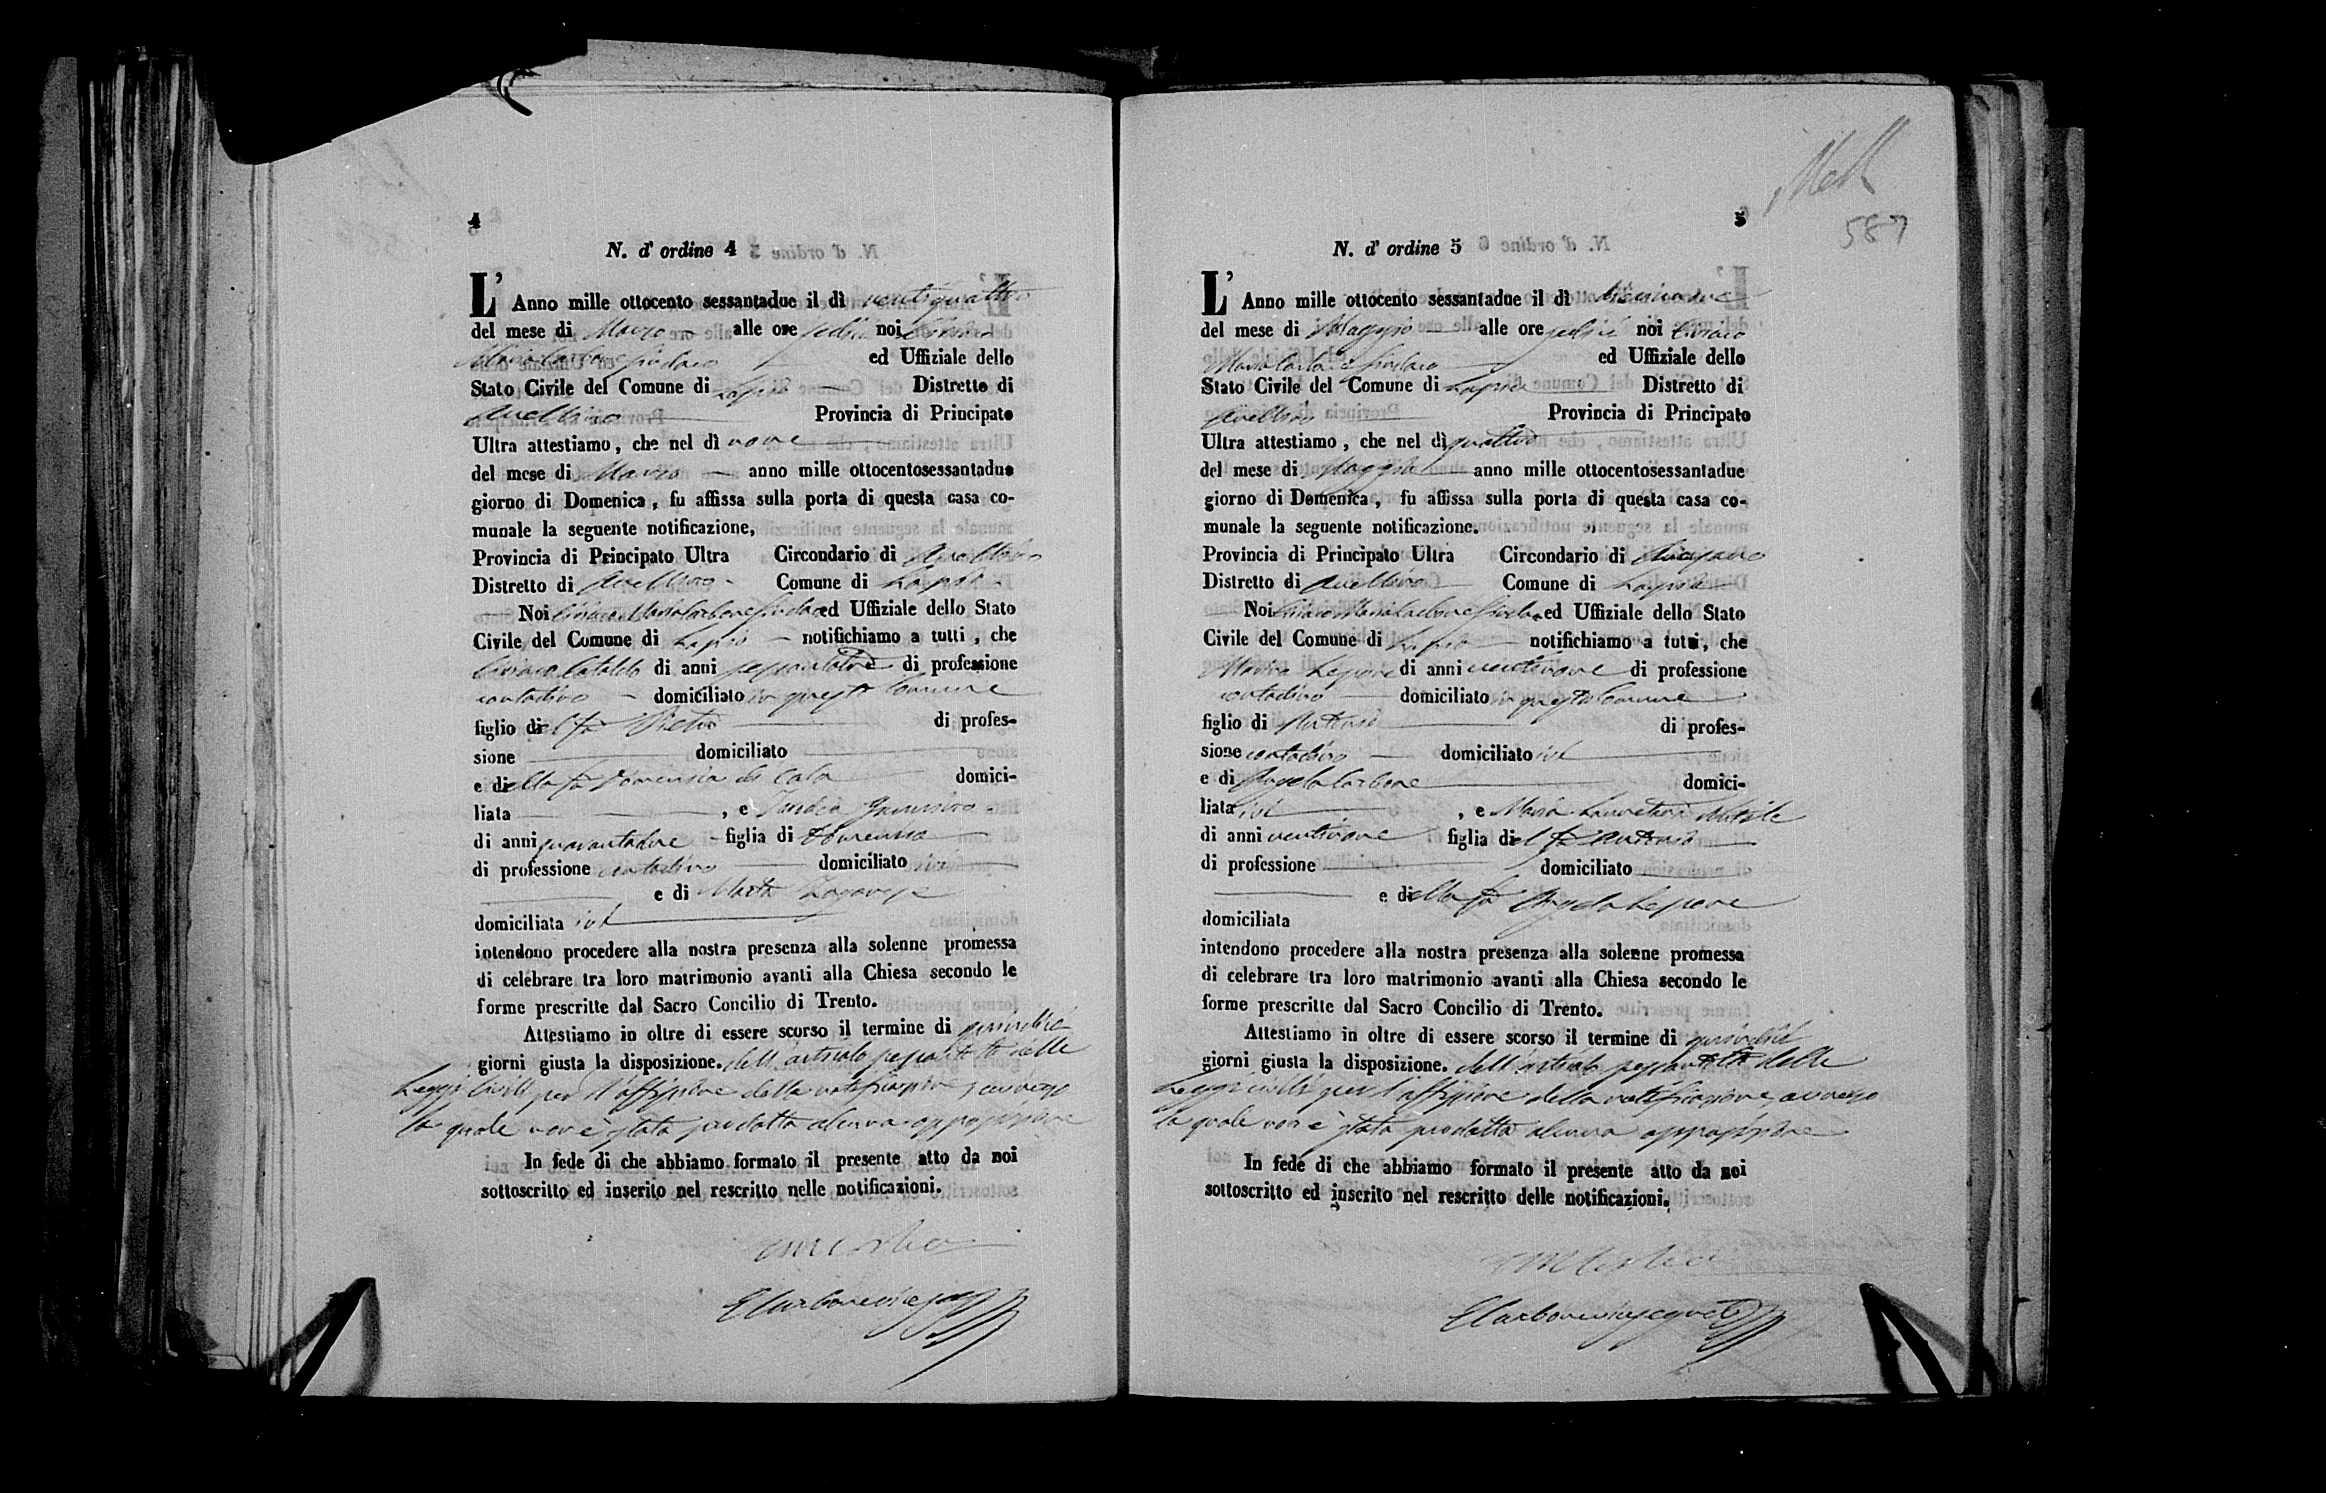 4
N. d' ordine 4
L' Anno mille ottocento sessantadue il dì ventiquattro
del mese di Marzo alle ore sedici noi Ciriaco
Maria Carbone Sindaco ed Uffiziale dello
Stato Civile del Comune di Lapio Distretto di
Avellino Provincia di Principato
Ultra attestiamo, che nel dì nove
del mese di Marzo anno mille ottocentosessantadue
giorno di Domenica, fu affissa sulla porta di questa casa co-
munale la seguente notificazione,
Provincia di Principato Ultra Circondario di
Distretto di Avellino Comune di Lapio
Noi Ciriaco Maria Carbone Sindaco ed Uffiziale dello Stato
Civile del Comune di Lapio notifichiamo a tutti, che
Ciriaco Cataldo di anni di professione
contadino domiciliato in questo Comune
figlio del fu Pietro di profes-
sione domiciliato
e della fu Domenica di domici-
liata , e
di anni quarantadue figlia di
di professione contadina domiciliato ivi
e di Marta
domiciliata ivi
intendono procedere alla nostra presenza alla solenne promessa
di celebrare tra loro matrimonio avanti alla Chiesa secondo le
forme prescritte dal Sacro Concilio di Trento.
Attestiamo in oltre di essere scorso il termine di quindici
giorni giusta la disposizione. dell'articolo sessantotto delle
Leggi Civili per l'affissione della notificazione, avverso
la quale non è stata prodotta alcuna opposizione
In fede di che abbiamo formato il presente atto da noi
sottoscritto ed inserito nel rescritto nelle notificazioni.
5
587
N. d' ordine 5
L' Anno mille ottocento sessantadue il dì
del mese di Maggio alle ore sedici noi Ciriaco
Maria Carbone Sindaco ed Uffiziale dello
Stato Civile del Comune di Lapio Distretto di
Avellino Provincia di Principato
Ultra attestiamo, che nel dì quattro
del mese di Maggio anno mille ottocentosessantadue
giorno di Domenica, fu affissa sulla porta di questa casa co-
munale la seguente notificazione.
Provincia di Principato Ultra Circondario di
Distretto di Avellino Comune di Lapio
Noi Ciriaco Maria Carbone Sindaco ed Uffiziale dello Stato
Civile del Comune di Lapio notifichiamo a tutti, che
Lepore di anni ventinove di professione
contadino domiciliato in questo Comune
figlio di Antonio di profes-
sione contadino domiciliato ivi
e di Angela Carbone domici-
liata ivi , e Maria
di anni ventinove figlia del fu Antonio
di professione domiciliato
e della fu Angela Lepore
domiciliata
intendono procedere alla nostra presenza alla solenne promessa
di celebrare tra loro matrimonio avanti alla Chiesa secondo le
forme prescritte dal Sacro Concilio di Trento.
Attestiamo in oltre di essere scorso il termine di quindici
giorni giusta la disposizione. dell'articolo sessantotto delle
Leggi civili per l'affissione della notificazione, avverso
la quale non è stata prodotta alcuna opposizione
In fede di che abbiamo formato il presente atto da noi
sottoscritto ed inserito nel rescritto delle notificazioni.